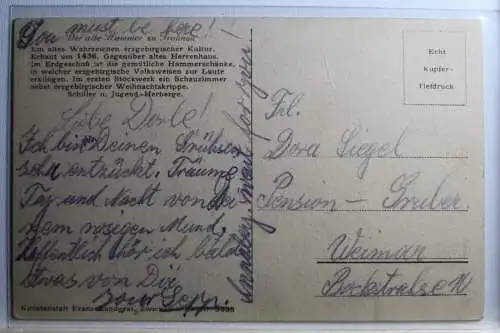 You must be here!
Der alte Hammer zu Frohnau
Ein altes Wahrzeichen erzgebirgischer Kultur.
Erbaut um 1436. Gegenüber altes Herrenhaus.
Im Erdgeschoß ist die gemütliche Hammerschänke,
in welcher erzgebirgische Volksweisen zur Laute
erklingen. Im ersten Stockwerk ein Schauzimmer
nebst erzgebirgischer Weihnachtskrippe.
Schüler u. Jugend-Herberge.
Liebe Dorle!
Ich bin von Deinen Grüßen
sehr entzückt. Träume
Tag und Nacht von Dei
nem rosigen Mund.
Hoffentlich hör ich bald
etwas von Dir
Sepp.
wait for you!
Echt
Kupfer-
Tiefdruck
Frl.
Dora Siegel
Pension - Gruber
Weimar
Bockstraße
Kunstanstalt Franz Landgraf, Zwickau